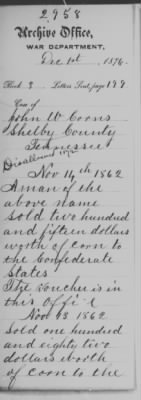 2958
Archive Office,
WAR DEPARTMENT,
Dec 1st, 1876.
Book 3 Letters Sent, page 199
Case of
John W Coons
Shelby County
Tennessee
Disallowed
Nov 14th 1862
A man of the
above name
Sold two hundred
and fifteen dollars
worth of corn to
the Confederate
States
The Voucher is in
this Office
Nov 13 1862
Sold one hundred
and eighty two
dollars worth
of corn to the